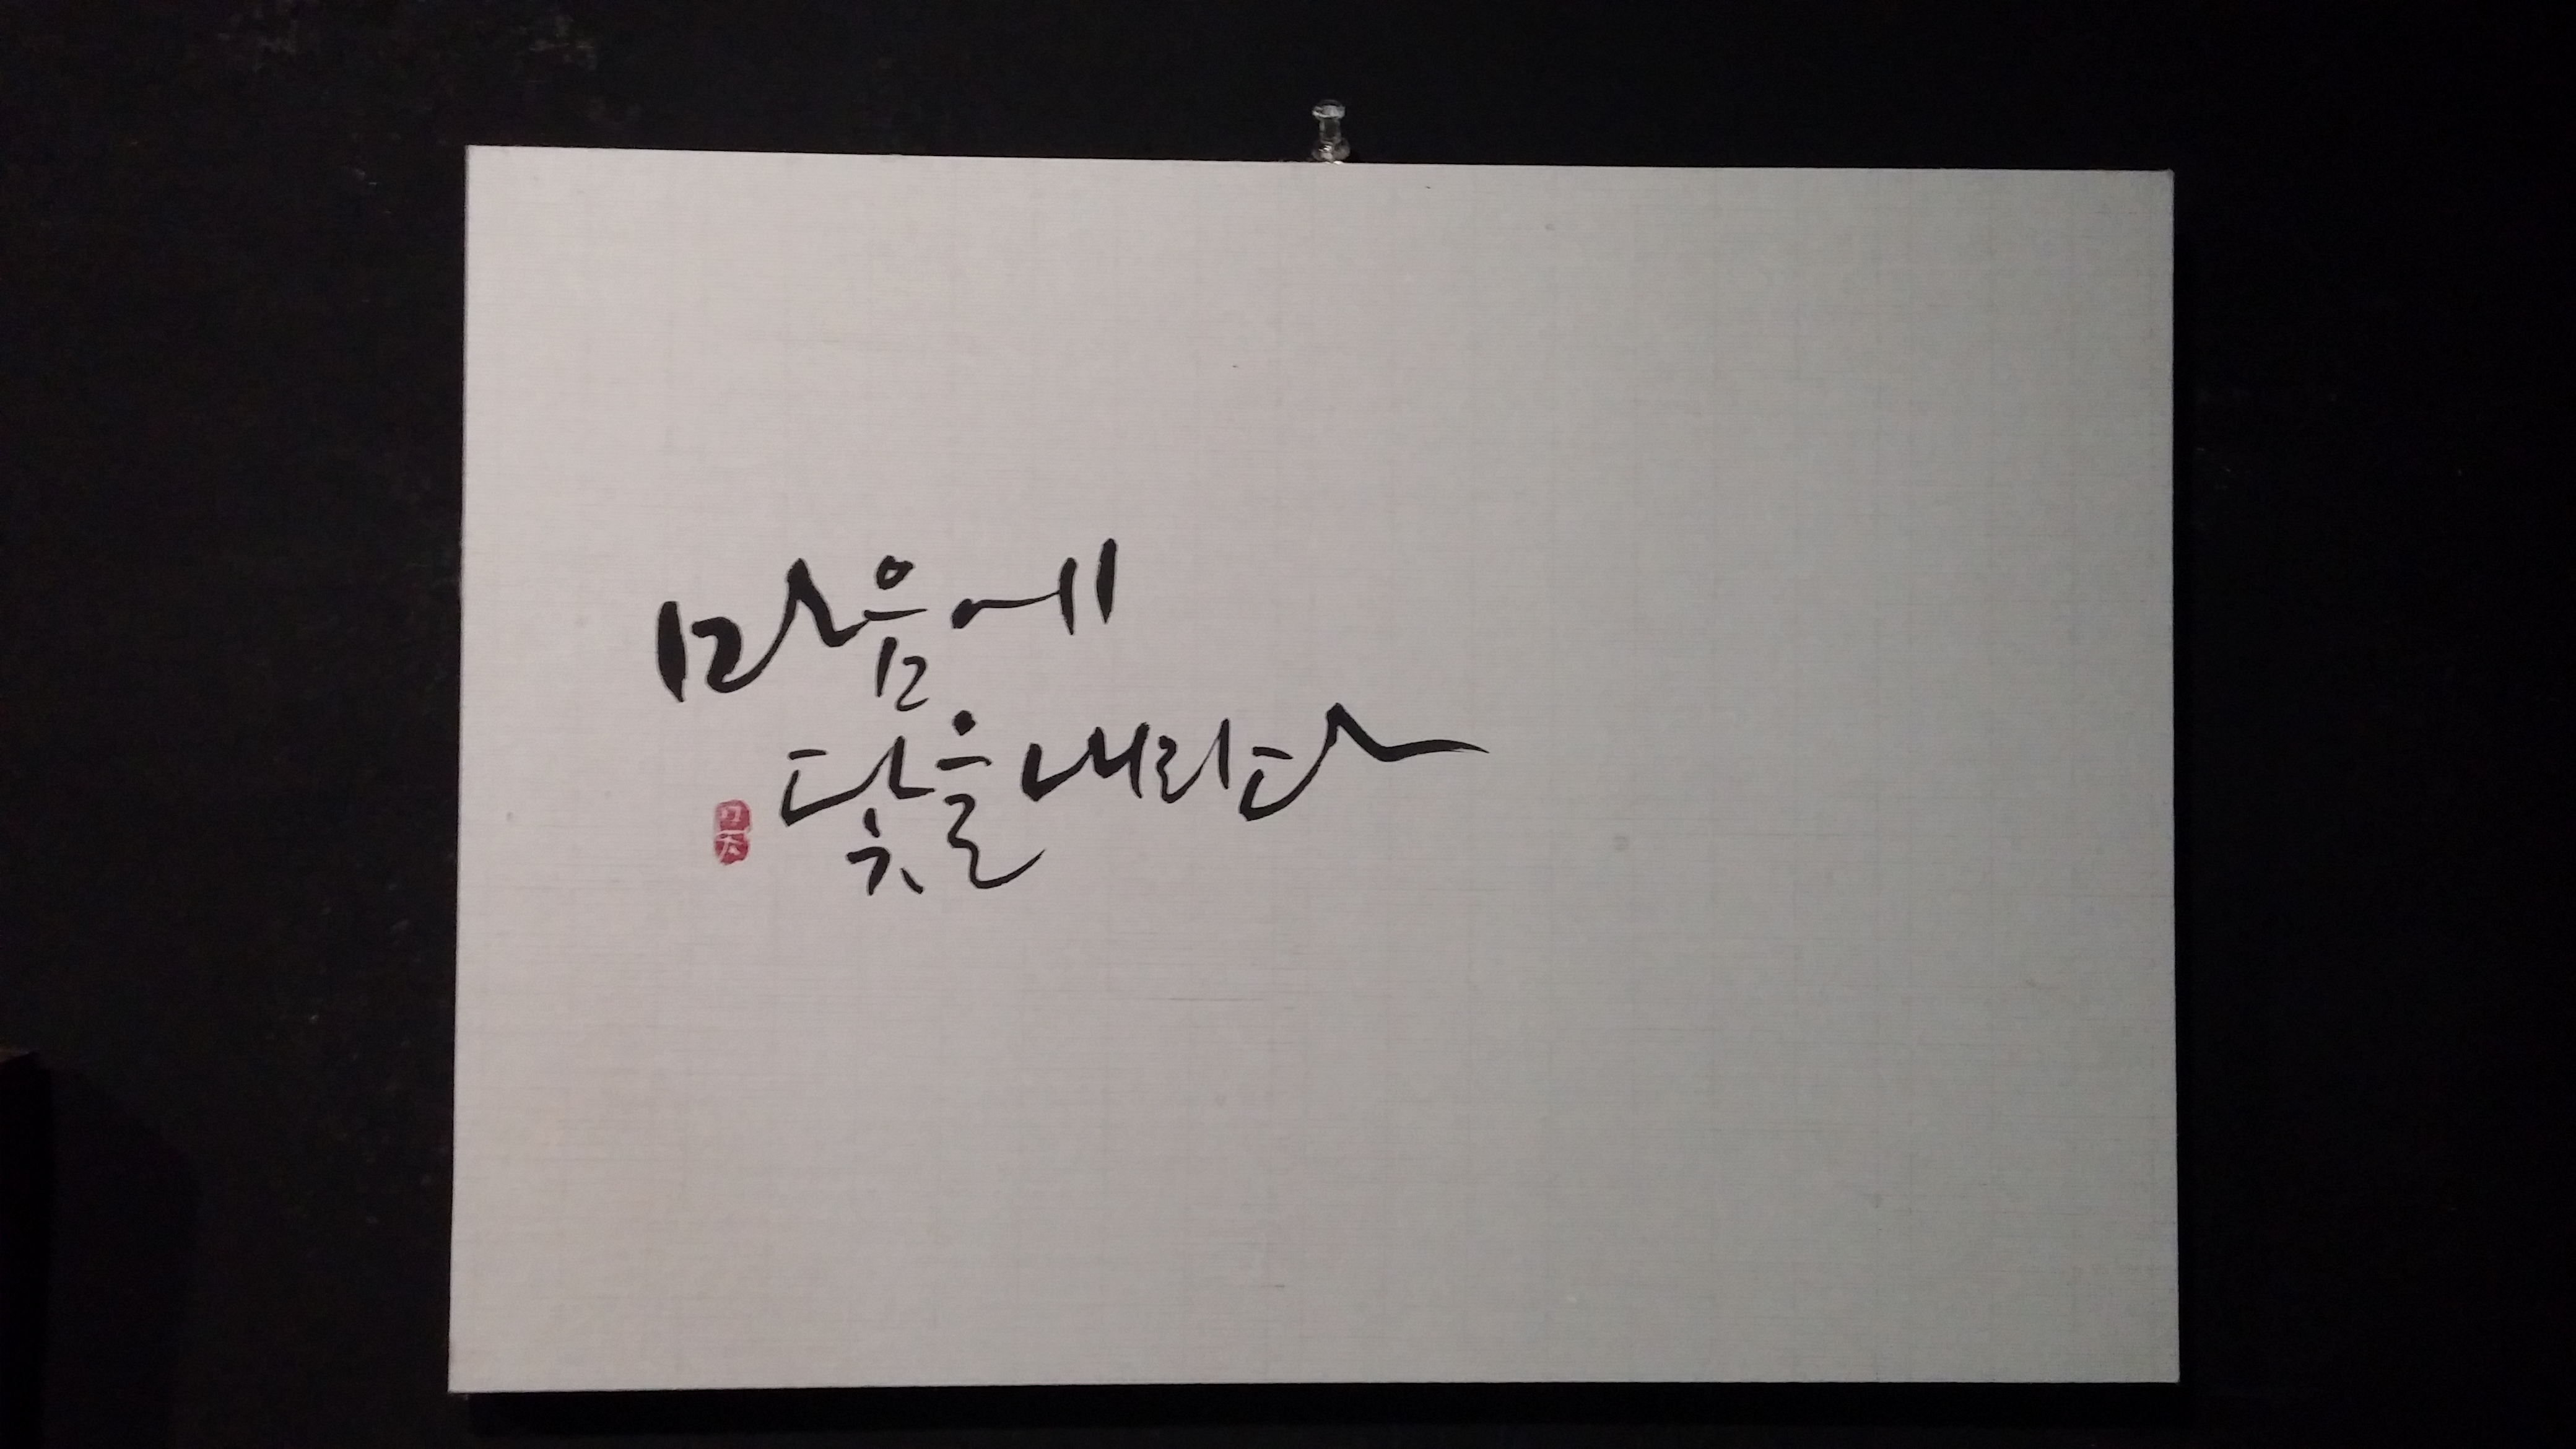 마음에
닻을 내리다